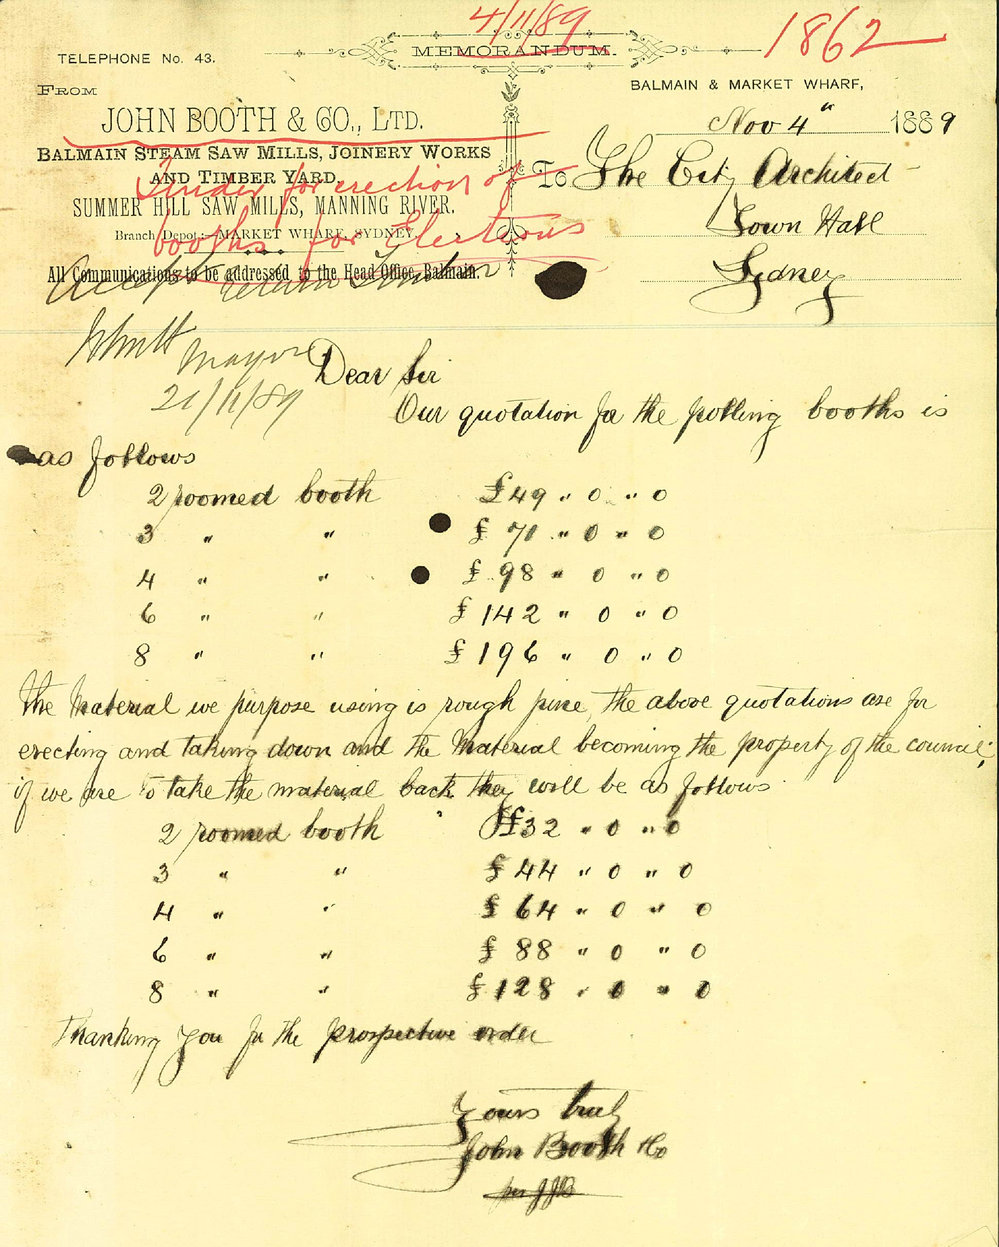 4/11/89
1862
MEMORANDUM.
TELEPHONE No. 43.
FROM
JOHN BOOTH & CO., LTD.
BALMAIN STEAM SAW MILLS, JOINERY WORKS
AND TIMBER YARD,
SUMMER HILL SAW MILLS, MANNING RIVER.
Branch Depot:—MARKET WHARF, SYDNEY.
All Communications to be addressed to the Head Office, Balmain.
Tender for erection of
booths for Elections
BALMAIN & MARKET WHARF,
Nov 4" 1889
To The City Architect
Town Hall
Sydney
Accept Tender
Mayor
21/11/89
Dear Sir
Our quotation for the polling booths is
as follows
2 roomed booth £49 " 0 " 0
3 " " £ 71 " 0 " 0
4 " " £ 98 " 0 " 0
6 " " £ 142 " 0 " 0
8 " " £ 196 " 0 " 0
The Material we purpose using is rough pine, the above quotations are for
erecting and taking down and the Material becoming the property of the council;
if we are to take the material back they will be as follows
2 roomed booth £32 " 0 " 0
3 " " £ 44 " 0 " 0
4 " " £ 64 " 0 " 0
6 " " £ 88 " 0 " 0
8 " " £ 128 " 0 " 0
Thanking you for the prospective order
Yours truly
John Booth & Co
per JJB